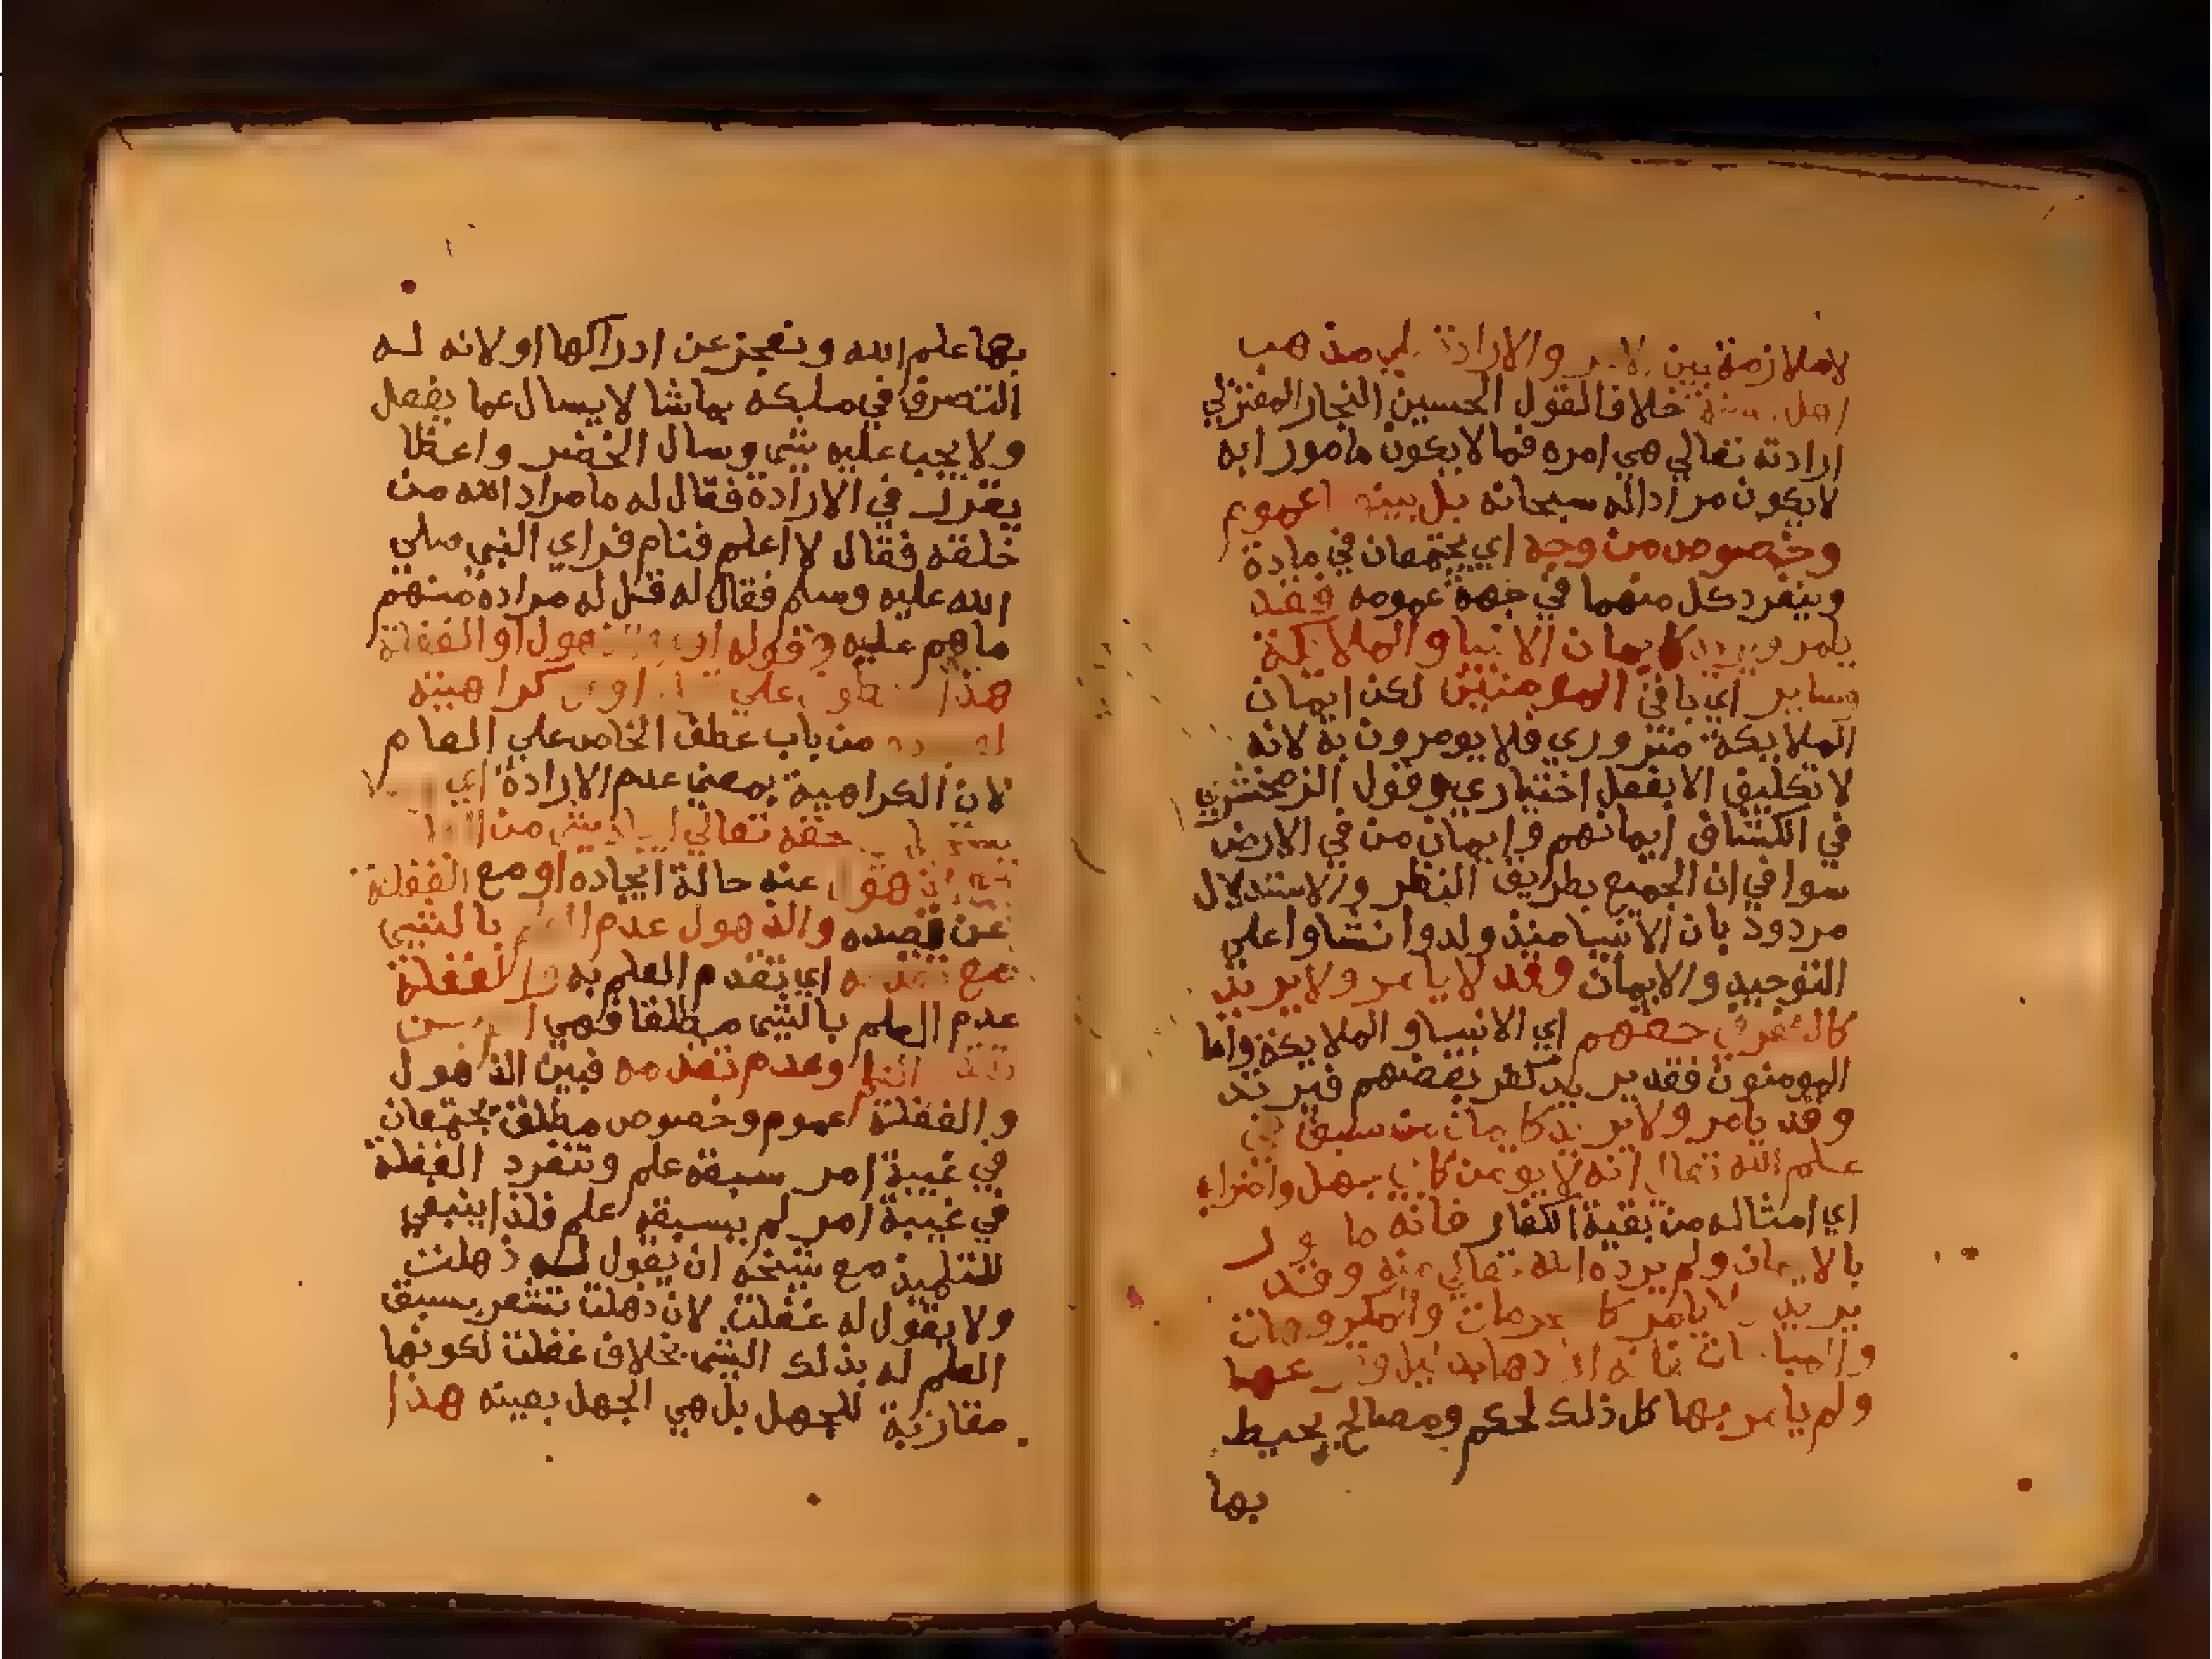 لاملازمة بين الامر والارادة علي مذهب
اهل السنة خلافا لقول الحسين النجار المعتزلي
ارادته تعالي هي امره فما لا يكون مامورا به
لا يكون مرادا له سبحانه بل بينهما عموم
وخصوص من وجه اي يجتمعان في مادة
وينفرد كل منهما في جهة عمومه فقد
يامر ويريد كايمان الانبيا والملايكة
وساير اي باقي المومنين لكن ايمان
الملايكة ضروري فلا يومرون به لانه
لا تكليف الا بفعل اختياري وقول الزمخشري
في الكشاف ايمانهم وايمان من في الارض
سوا في ان الجميع بطريق النظر والاستدلال
مردود بان الانبيا منذ ولدوا نشاوا علي
التوحيد والايمان وقد لا يامر ولا يريد
كالكفر في حقهم اي الانبيا والملايكة واما
المومنون فقد يريد كفر بعضهم فيرتد
وقد يامر ولا يريد كايمان من سبق في
علم الله تعالي انه لا يومن كابي جهل واضرابه
اي امثاله من بقية الكفار فانه مامور
بالايمان ولم يرده الله تعالي منه وقد
يريد ولا يامر كالمحرمات والمكروهات
والمباحات فانه ارادها بدليل وقوعها
ولم يامر بها كل ذلك لحكم ومصالح يحيط
بها
بها علم الله ونعجز عن ادراكها او لانه له
التصرف في ملكه بما شا لا يسال عما يفعل
ولا يجب عليه شي وسال الخضر واعظا
يقرر في الارادة فقال له ما مراد الله من
خلقه فقال لا اعلم فنام فراي النبي صلي
الله عليه وسلم فقال له قل له مراده منهم
ما هم عليه وقوله او الذهول او الغفلة
هذا معطوف علي كراهيته
من باب عطف الخاص علي العام
لان الكراهية بمعني عدم الارادة اي
حقه تعالي ايجاد شي من
الذهول عنه حالة ايجاده او مع الغفلة
عن قصده والذهول عدم العلم بالشي
مع تقدمه اي تقدم العلم به والغفلة
عدم العلم بالشي مطلقا فهي اعم من
تقدم العلم وعدم تقدمه فبين الذهول
والغفلة عموم وخصوص مطلق يجتمعان
في غيبة امر سبقه علم وتنفرد الغفلة
في غيبة امر لم يسبقه علم فلذا ينبغي
للتلميذ مع شيخه ان يقول له ذهلت
ولا يقول له غفلت لان ذهلت تشعر بسبق
العلم له بذلك الشي بخلاف غفلت لكونها
مقارنة للجهل بل هي الجهل بعينه هذا